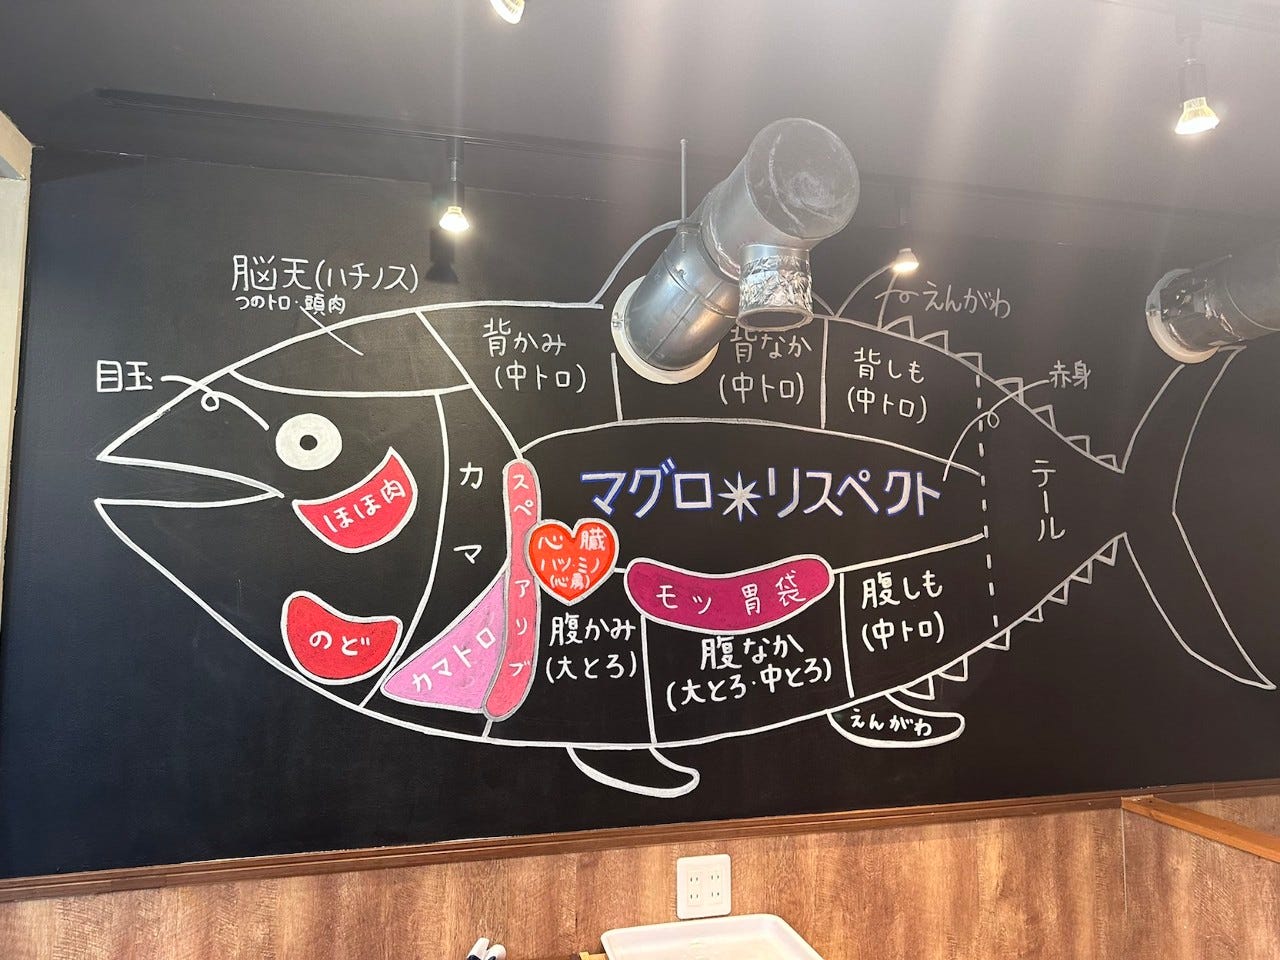 脳天(ハチノス)
つのトロ・頭肉
目玉
ほほ肉
のど
カマ
カマトロ
スペアリブ
心臓
ハツ・ミノ
背かみ
(中トロ)
背なか
(中トロ)
背しも
(中トロ)
えんがわ
赤身
テール
マグロ✴リスペクト
モツ 胃袋
腹かみ
(大とろ)
腹なか
(大とろ・中とろ)
腹しも
(中トロ)
えんがわ